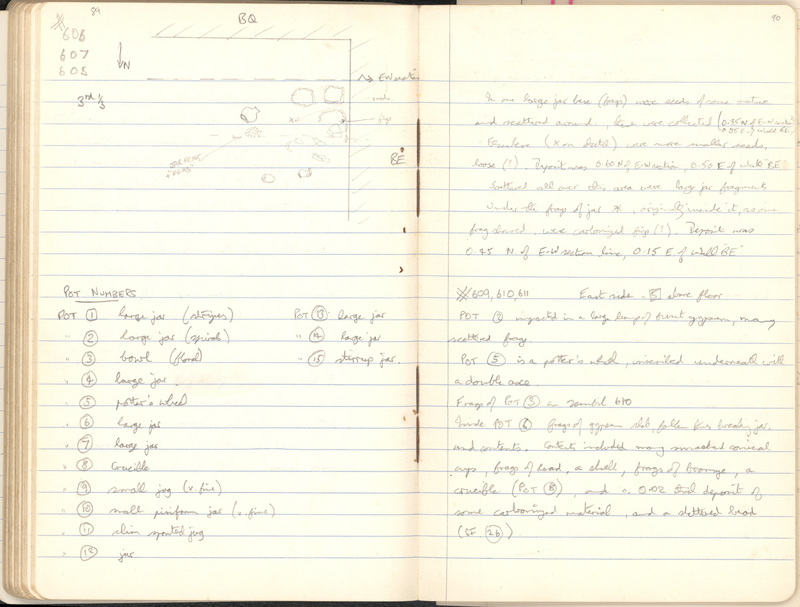 89
606
607
605
N
BQ
3rd ⅓
EW section
BE
POT NUMBERS
POT 1 large jar (stripes)
" 2 large jar (spirals)
" 3 bowl (floral)
" 4 large jar
" 5 potter's wheel
" 6 large jar
" 7 large jar
" 8 Crucible
" 9 small jug (v. fine)
" 10 small piriform jar (v. fine)
" 11 slim spouted jug
" 12 jar
POT 13 large jar
" 14 large jar
" 15 stirrup jar.
90
In one large jar base (frag) were seeds of some nature
and scattered around. Some were collected
Elsewhere (X on sketch) were more smaller seeds,
loose (!). Deposit was 0.60 N of E-W section, 0.50 E of Wall "BE"
Scattered all over this area were large jar fragments
Under the frags of jar *, originally inside it, as some
frags showed, were carbonized figs (!). Deposit was
0.45 N of E-W section line, 0.15 E of Wall "BE"
609, 610, 611 East side - 5 above floor
POT impacted in a large lump of burnt gypsum, many
scattered frags.
POT 5 is a potter's wheel, inscribed underneath with
a double axe.
Frags of POT 3 in zembil 610
Inside POT 6 frags of gypsum slab, fallen thus breaking jar,
and contents. Contents included many smashed conical
cups, frags of lead, a shell, frags of bronze, a
crucible (POT 8), and a 0.02 thick deposit of
some carbonized material, and a bead
(SF 26)